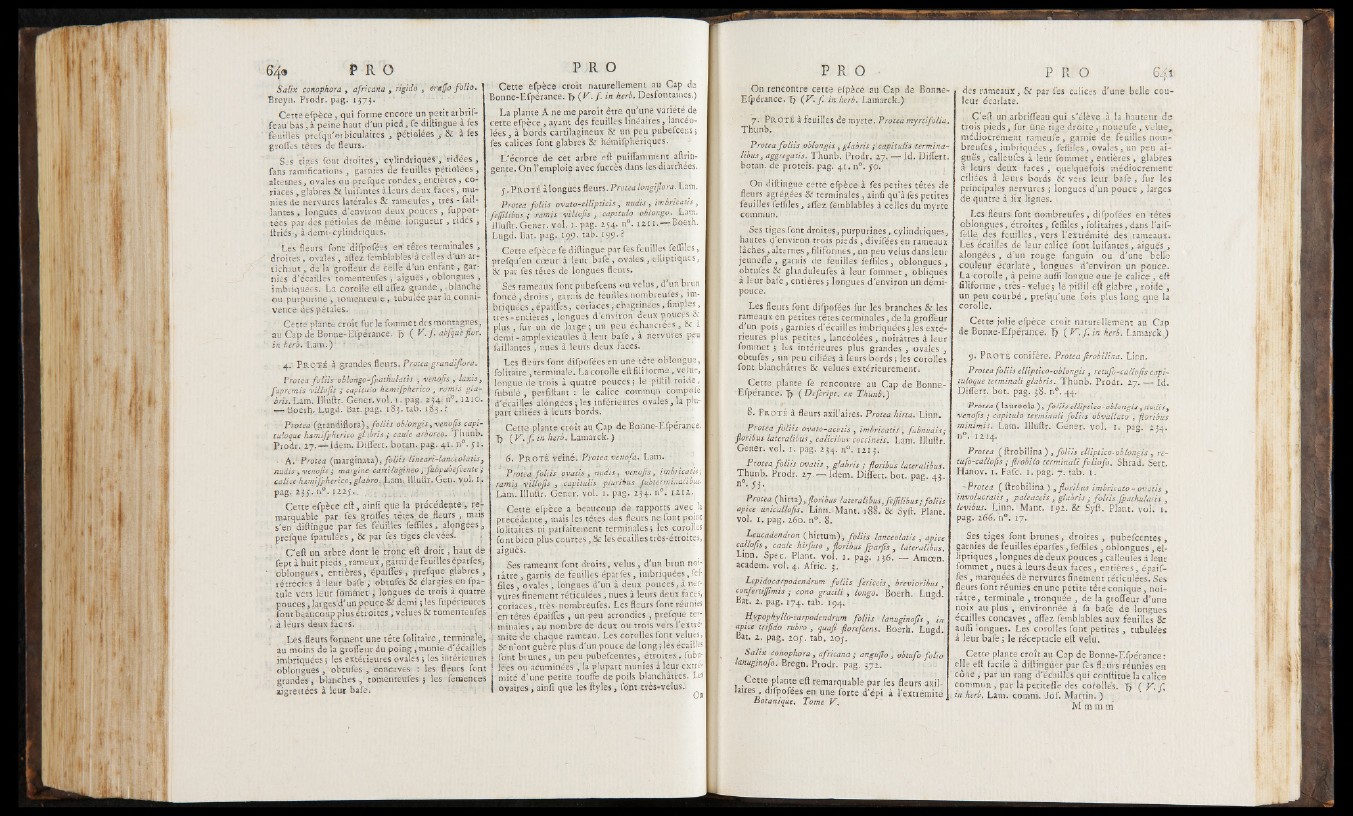 640 P R O
Salix conophora , africana , rigido , crasso folio.
Breyn. Prodr. pag. 1373.
Cette espèce , qui forme encore un petit arbris-
seau bas , à peine haut d'un pied , se distingue à ses
feuilles presqu'orbiculaires , pétiolées , & à ses
grosses têtes de fleurs.
Ses tiges sont droites, cylindriques , ridées ,
sans ramifications , garnies de feuilles pétiolées ,
alternes, ovales ou presque rondes, entières, co-
riaces , glabres & luisantes à leurs deux faces, mu-
nies de nervures latérales & rameuses , très-sail-
lantes , longues d'environ deux pouces , suppor-
tées par des pétioles de même longueur , ridés ,
striés , à demi-cylindriques.
Les fleurs sont disposées en têtes terminales ,
droites, ovales , assez semblables à celles d'un ar-
tichaut , de la grosseur de celle d'un enfant, gar-
nies d'écailles tomenteuses , aiguës , oblongues ,
imbriquées. La corolle est assez grande , blanche
ou purpurine , tomenteuse , tubulée par la conni-
vence des pétales.
Cette plante croît sur le sommet des montagnes,
au Cap de Bonne-Espérance. ♄ ( V. s. absque flor.
in herb. Lam.)
4. PROTÉ à grandes fleurs. Protea grandiflora.
Protea foliis oblongo-spathulatis , venosis , laxis,
supremis villosis ; capitulo hemispherico , ramis gla-
bris. Lam. Illustr. Gener. vol. 1. pag. 234. n°. 1210.
— Boerh. Lugd. Bat. pag. 183. tab. 183. ?
Protea (grandiflora), foliis oblongis, venosis capi-
tuloque hemispherico glabris ; caule arboreo. Thunb.
Prodr. 27. — Idem. Dissert. botan. pag. 41. n°. 51.
A. Protea (marginata), foliis lineari-lanceolatis,
nudis , venosis ; margine cartilagineo, subpubescente ;
calice hemispherico, glabro. Lam. Illustr. Gen. vol. 1.
pag. 235. n°. 1225.
Cette espèce est , ainsi que la précédente, re-
marquable par ses grosses têtes de fleurs , mais
s'en distingue par ses feuilles sessiles , alongées ,
presque spatulées , & par ses tiges élevées.
C'est un arbre dont le tronc est droit , haut de
sept à huit pieds , rameux , garni de feuilles éparses,
oblongues , entières, épaisses, presque glabres ,
rétrécies à leur base , obtuses & élargies en spa-
tule vers leur sommet , longues de trois à quatre
pouces , larges d'un pouce & demi ; les supérieures
sont beaucoup plus étroites , velues & tomenteuses
à leurs deux faces.
Les fleurs forment une tête solitaire , terminale,
au moins de la grosseur du poing , munie d'écailles
imbriquées ; les extérieures ovales ; les intérieures
oblongues , obtuses , concaves : les fleurs sont
grandes , blanches , tomenteuses ; les semences
aigrettées à leur base.
P R O
Cette espèce croît naturellement au Cap de
Bonne-Espérance. ♄ (V. s. in herb. Desfontaines.)
La plante A ne me paroît être qu'une variété de
cette espèce , ayant des feuilles linéaires , lancéo-
lées , à bords cartilagineux & un peu pubescens ;
ses calices sont glabres & hémisphériques.
L'écorce de cet arbre est puissamment astrin-
gente. On l'emploie avec succès dans les diarrhées.
5. PROTÉ à longues fleurs. Protea longiflora. Lam.
Protea foliis ovato-ellipticis , nudis , imbricatis ,
sessilibus ; ramis villosis , capitulo oblongo. Lam.
Illustr. Gener. vol. 1. pag. 234. n°. 1211. — Boerh.
Lugd. Bat. pag. 199. tab. 199. ?
Cette espèce se distingue par ses feuilles sessiles ,
presqu'en cœur à leur base , ovales , elliptiques ,
& par ses têtes de longues fleurs.
Ses rameaux sont pubescens ou velus , d'un brun
foncé , droits , garnis de feuilles nombreuses , im-
briquées , épaisses , coriaces , chagrinées , simples ,
très-entières , longues d'environ deux pouces &
plus , sur un de large ; un peu échancrées , &
demi-amplexicaules à leur base , à nervures peu
saillantes , nues à leurs deux faces.
Les fleurs sont disposées en une tête oblongue,
solitaire , terminale. La corolle est filiforme , velue,
longue de trois à quatre pouces ; le pistil roide ,
subulé , persistant : le calice commun composé
d'écailles alongées ; les inférieures ovales , la plu-
part ciliées à leurs bords.
Cette plante croît au Cap de Bonne-Espérance.
♄ ( V. s. in herb. Lamarck. )
6. PROTÉ veiné. Protea venosa. Lam.
Protea foliis ovatis , nudis , venosis , imbricatis ;
ramis villosis , capitulis pluribus subterminalibus.
Lam. Illustr. Gener. vol. 1. pag. 234. n°. 1212.
Cette espèce a beaucoup de rapports avec la
précédente , mais les têtes des fleurs ne sont point
solitaires ni parfaitement terminales ; les corolles
sont bien plus courtes , & les écailles très-étroites,
aiguës.
Ses rameaux sont droits, velus , d'un brun noi-
râtre , garnis de feuilles éparses , imbriquées , ses-
siles , ovales , longues d'un à deux pouces , à ner-
vures finement réticulées , nues à leurs deux faces,
coriaces , très-nombreuses. Les fleurs sont réunies
en têtes épaisses , un peu arrondies , presque ter-
minales , au nombre de deux ou trois vers l'extré-
mité de chaque rameau. Les corolles sont velues,
& n'ont guère plus d'un pouce de long ; les écailles
sont brunes , un peu pubescentes , étroites , subu-
lées ou acuminées , la plupart munies à leur extré-
mité d'une petite touffe de poils blanchâtres. Les
ovaires , ainsi que les styles , sont très-velus.
On
P R O
On rencontre cette espèce au Cap de Bonne-
Espérance. ♄ (V. s. in herb. Lamarck.)
7. PROTÉ à feuilles de myrte. Protea myrtifolia.
Thunb.
Protea foliis oblongis , glabris ; capitulis termina-
libus , aggregatis. Thunb. Prodr. 27. — Id. Dissert.
botan. de proteis. pag. 41. n°. 50.
On distingue cette espèce à ses petites têtes de
fleurs agrégées & terminales , ainsi qu'à ses petites
feuilles sessiles , assez semblables à celles du myrte
commun.
Ses tiges sont droites, purpurines, cylindriques,
hautes d'environ trois pieds , divisées en rameaux
lâches , alternes , filiformes , un peu velus dans leur
jeunesse , garnis de feuilles sessiles , oblongues ,
obtuses & glanduleuses à leur sommet , obliques
à leur base , entières ; longues d'environ un demi-
pouce.
Les fleurs sont disposées sur les branches & les
rameaux en petites têtes terminales , de la grosseur
d'un pois , garnies d'écailles imbriquées ; les exté-
rieures plus petites , lancéolées , noirâtres à leur
sommet ; les intérieures plus grandes , ovales ,
obtuses , un peu ciliées à leurs bords ; les corolles
sont blanchâtres & velues extérieurement.
Cette plante se rencontre au Cap de Bonne-
Espérance. ♄ (Descript. ex Thunb.)
8. PROTÉ à fleurs axillaires. Protea hirta. Linn.
Protea foliis ovato-acutis , imbricatis , subnudis ;
floribus lateralibus , calicibus coccineis. Lam. Illustr.
Gener. vol. 1. pag. 234. n°. 1213.
Protea foliis ovatis , glabris ; floribus lateralibus.
Thunb. Prodr. 27. — Idem. Dissert. bot. pag. 43.
n°. 53.
Protea (hirta), floribus lateralibus, sessilibus ; foliis
apice unicallosis. Linn. Mant. 188. & Syst. Plant.
vol. 1. pag. 260. n°. 8.
Leucadendron (hirtum), foliis lanceolatis , apice
callosis , caule hirsuto , floribus sparsis , lateralibus.
Linn. Spec. Plant. vol. 1. pag. 136. — Amœn.
academ. vol. 4. Afric. 3.
Lepidocarpodendrum foliis sericeis , brevioribus ,
confertissimis ; cono gracili , longo. Boerh. Lugd.
Bat. 2. pag. 174. tab. 194.
Hypophyllo-carpodendrum foliis lanuginosis , in
apice trifido rubro , quasi florescens. Boerh. Lugd.
Bat. 2. pag. 205. tab. 205.
Salix conophora , africana ; angusto , obtuso folio
lanuginoso. Bregn. Prodr. pag. 372.
Cette plante est remarquable par ses fleurs axil-
laires , disposées en une sorte d'épi à l'extrémité
Botanique. Tome V.
P R O 641
des rameaux , & par ses calices d'une belle cou-
leur écarlate.
C'est un arbrisseau qui s'élève à la hauteur de
trois pieds , sur une tige droite , noueuse , velue,
médiocrement rameuse , garnie de feuilles nom-
breuses , imbriquées , sessiles , ovales , un peu ai-
guës , calleuses à leur sommet , entières , glabres
à leurs deux faces , quelquefois médiocrement
ciliées à leurs bords & vers leur base , sur les
principales nervures ; longues d'un pouce , larges
de quatre à six lignes.
Les fleurs sont nombreuses , disposées en têtes
oblongues , étroites , sessiles , solitaires , dans l'ais-
selle des feuilles , vers l'extrémité des rameaux.
Les écailles de leur calice sont luisantes , aiguës ,
alongées , d'un rouge sanguin ou d'une belle
couleur écarlate , longues d'environ un pouce.
La corolle , à peine aussi longue que le calice , est
filiforme , très-velue ; le pistil est glabre , roide ,
un peu courbé , presqu'une fois plus long que la
corolle.
Cette jolie espèce croît naturellement au Cap
de Bonne-Espérance. ♄ (V. s. in herb. Lamarck.)
9. PROTÉ conifère. Protea strobilina. Linn.
Protea foliis elliptico-oblongis , retuso-callosis capi-
tuloque terminali glabris. Thunb. Prodr. 27. — Id.
Dissert. bot. pag. 38. n°. 44.
Protea (laureola), foliis elliptico-oblongis , nudis,
venosis ; capitulo terminali foliis obvallato , floribus
minimis. Lam. Illustr. Gener. vol. 1. pag. 234.
n°. 1214.
Protea (strobilina), foliis elliptico-oblongis , re-
tuso-callosis ; strobilo terminali folioso. Shrad. Sert.
Hanov. 1. Fasc. 1. pag. 7. tab. 1.
Protea (strobilina), floribus imbricato-ovatis ,
involucratis , paleaceis , glabris ; foliis spathulatis ,
levibus. Linn. Mant. 192. & Syst. Plant. vol. 1.
pag. 266. n°. 17.
Ses tiges sont brunes , droites , pubescentes ,
garnies de feuilles éparses , sessiles , oblongues , el-
liptiques , longues de deux pouces , calleuses à leur
sommet , nues à leurs deux faces , entières , épais-
ses , marquées de nervures finement réticulées. Ses
fleurs sont réunies en une petite tête conique , noi-
râtre , terminale , tronquée , de la grosseur d'une
noix au plus , environnée à sa base de longues
écailles concaves , assez semblables aux feuilles &
aussi longues. Les corolles sont petites , tubulées
à leur base ; le réceptacle est velu.
Cette plante croît au Cap de Bonne-Espérance :
elle est facile à distinguer par ses fleurs réunies en
cône , par un rang d'écailles qui constitue la calice
commun , par la petitesse des corolles. ♄ ( V. s.
in herb. Lam. comm. Jos. Martin. )
M m m m